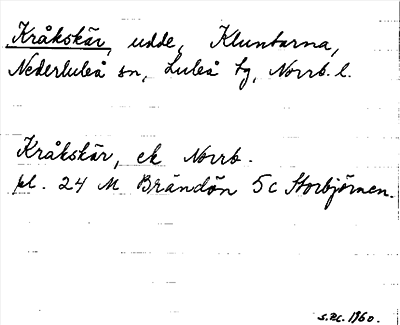 Kråkskär, udde, Kluntarna,
Nederluleå sn, Luleå tg, Norrb. l.
Kråkskär, ek Norrb.
pl. 24 M Brändön 5c Storbjörnen.
1960.